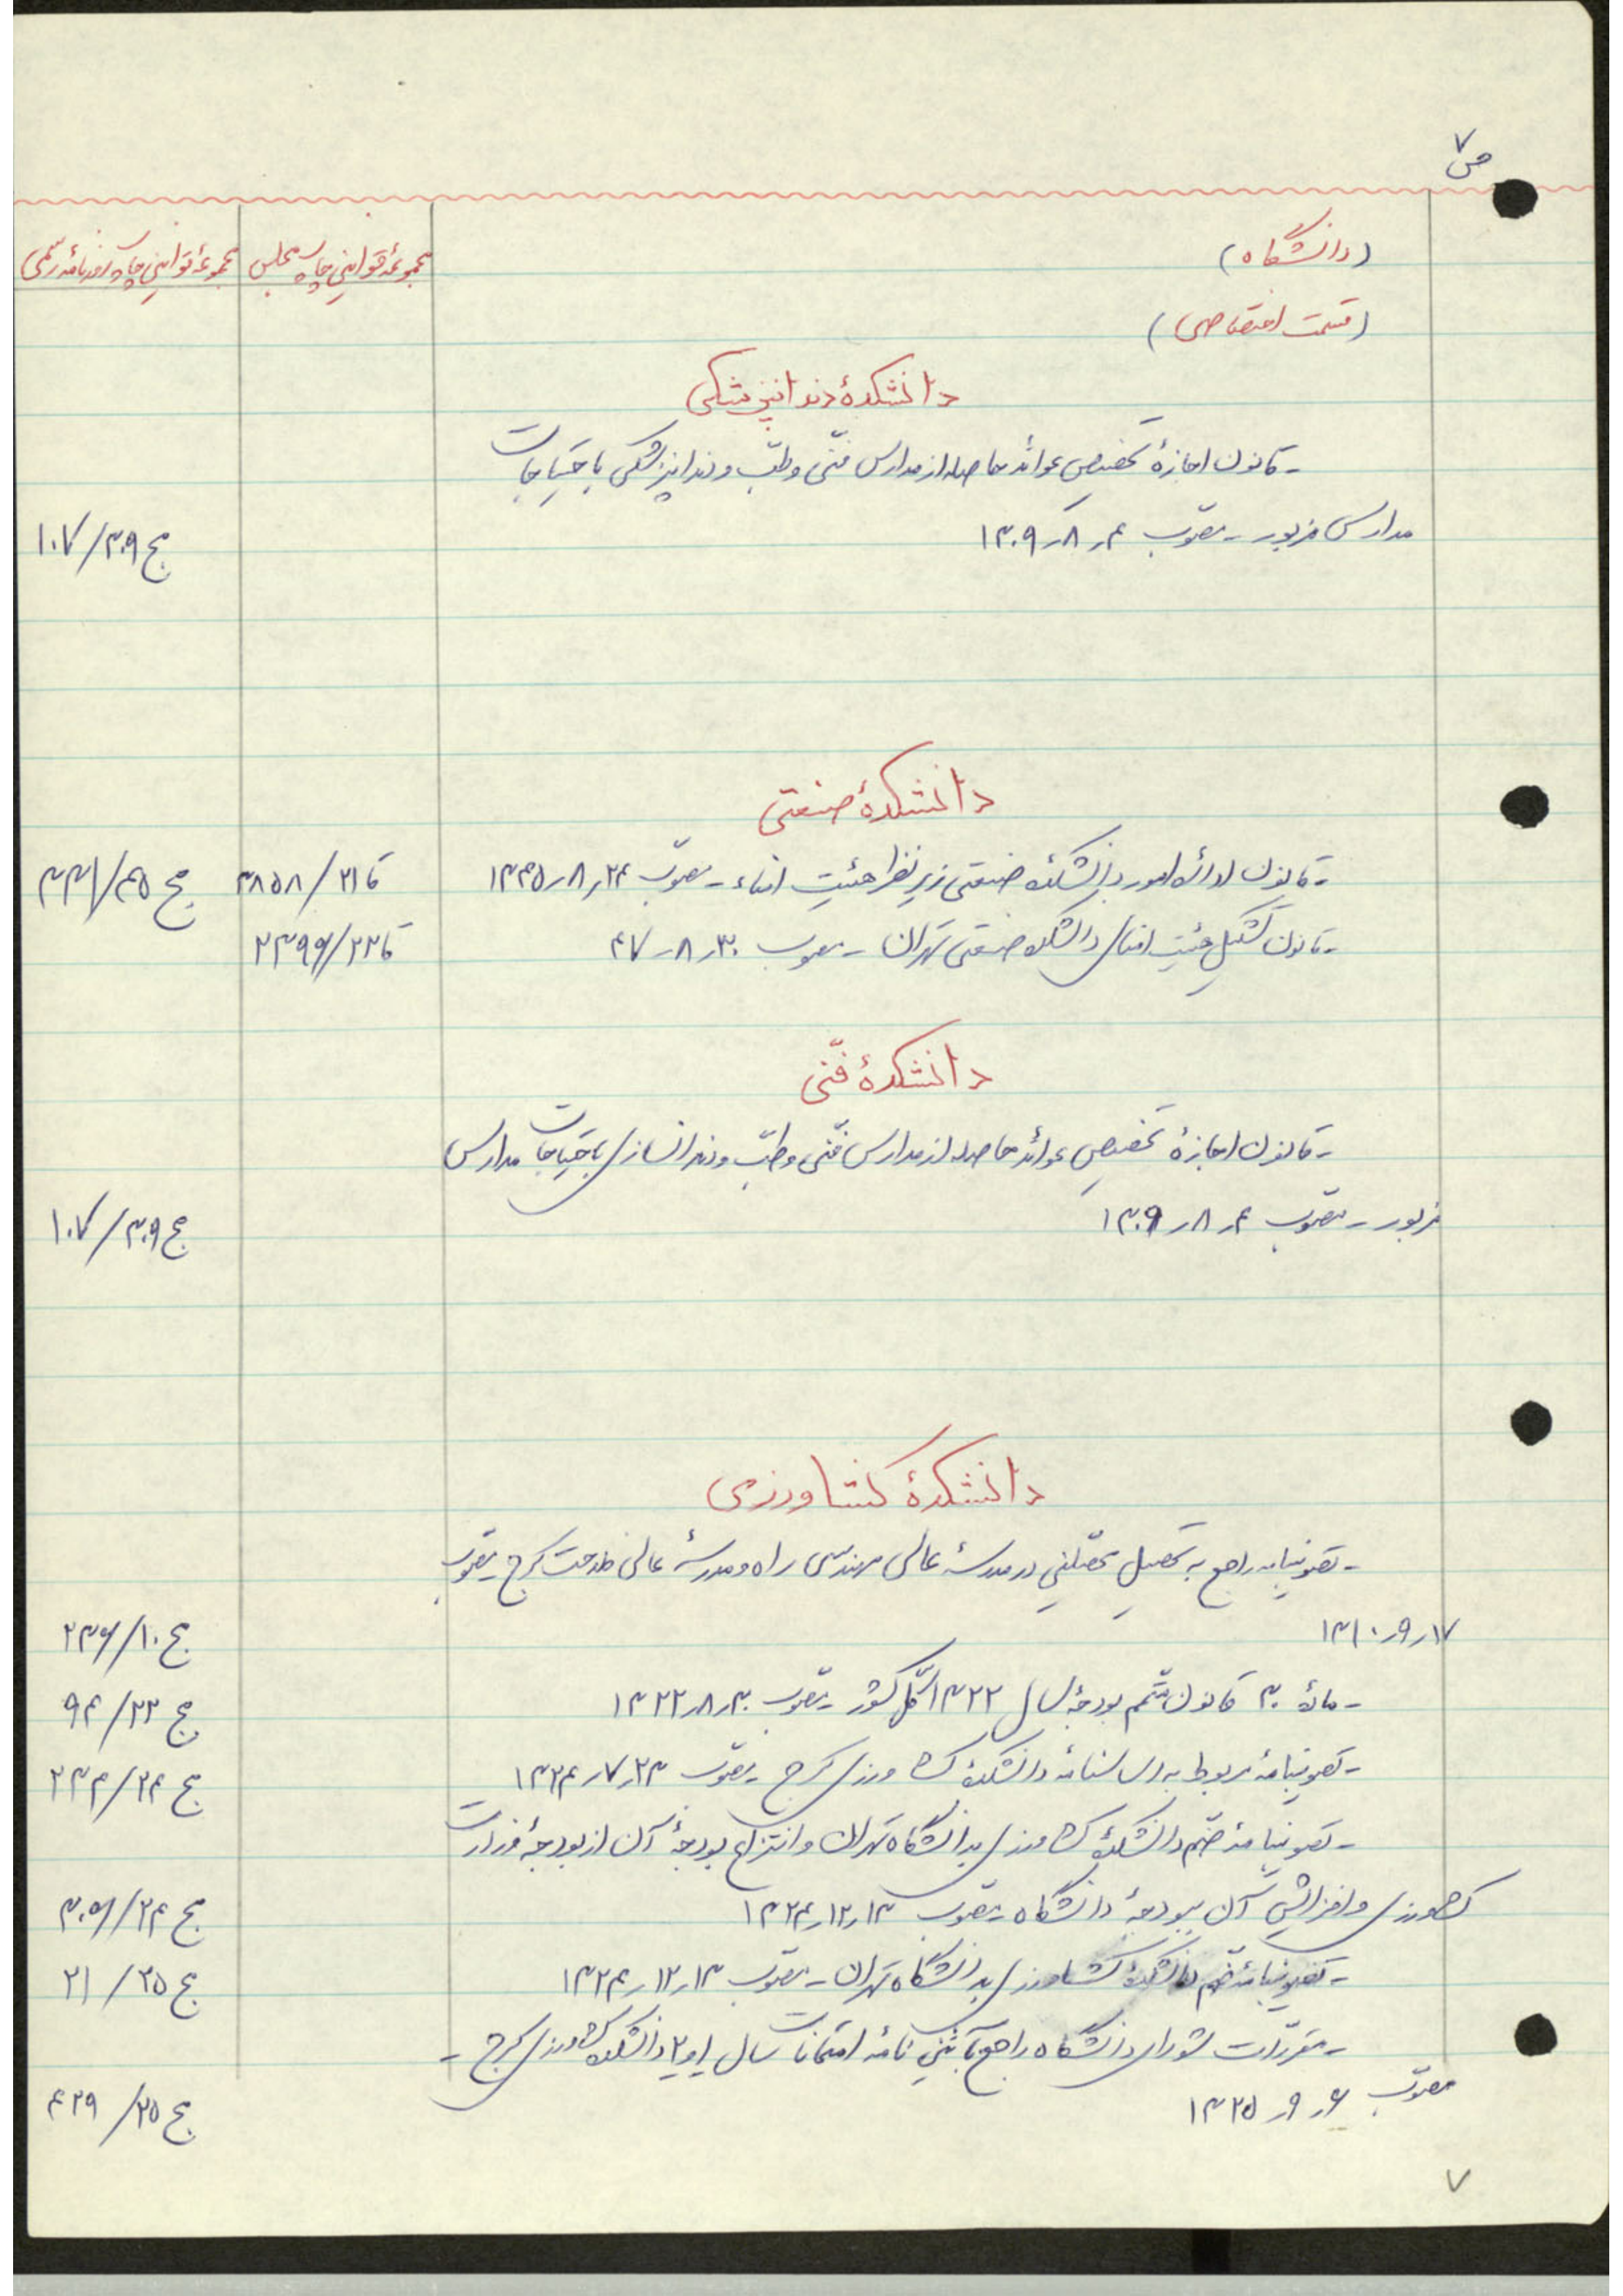 ص ۷
(دانشگاه)
مجموعهٔ قوانین چاپ مجلس
مجموعهٔ قوانین چاپ روزنامهٔ رسمی
(قسمت اختصاصی)
دانشکدهٔ دندانپزشکی
- قانون اجازهٔ تخصیص عوائد حاصله از مدارس فنّی و طبّ و دندانپزشکی باحتیاجات
مدارس مزبور - مصوّب ۴ر۸ر۱۳۰۹
مج ۳۰۹/۱۰۷
دانشکدهٔ صنعتی
- قانون ادارهٔ امور دانشکدهٔ صنعتی زیر نظر هیئت امناء - مصوّب ۲۴ر۸ر۱۳۴۵
قا ۲۱/۳۸۵۸
مج ۴۵/۳۳۱
- قانون تشکیل هیئت امنای دانشکده صنعتی تهران - مصوب ۳۰ر۸ر۴۷
قا ۲۲/۲۳۹۶
دانشکدهٔ فنّی
- قانون اجازهٔ تخصیص عوائد حاصله از مدارس فنّی و طبّ و دندانسازی باحتیاجات مدارس
مزبور - مصوّب ۴ر۸ر۱۳۰۹
مج ۳۰۹/۱۰۷
دانشکدهٔ کشاورزی
- تصویبنامه راجع به تحصیل محصّلین در مدرسهٔ عالی مهندسی راه و مدرسهٔ عالی فلاحت کرج مصوّب
۱۷ر۹ر۱۳۱۰
مج ۱۰/۲۳۶
- مادهٔ ۳۰ قانون متمّم بودجهٔ سال ۱۳۲۲ کلّ کشور - مصوّب ۳۰ر۸ر۱۳۲۲
مج ۲۲/۹۴
- تصویبنامهٔ مربوط به اساسنامهٔ دانشکدهٔ کشاورزی کرج - مصوّب ۲۳ر۷ر۱۳۲۴
مج ۲۴/۲۳۴
- تصویبنامهٔ ضمّ دانشکدهٔ کشاورزی بدانشگاه تهران و انتزاع بودجهٔ آن از بودجهٔ وزارت
کشاورزی و افزایش آن ببودجهٔ دانشگاه - مصوّب ۱۳ر۱۲ر۱۳۲۴
مج ۲۴/۳۰۵
- تصویبنامهٔ ضمّ دانشکدهٔ کشاورزی بدانشگاه تهران - مصوّب ۱۳ر۱۲ر۱۳۲۴
مج ۲۵/۲۱
- مقرّرات شورای دانشگاه راجع بآئین نامهٔ امتحانات سال ۱و۲ دانشکدهٔ کشاورزی کرج -
مصوّب ۶ر۹ر۱۳۲۵
مج ۲۵/۴۲۹
۷